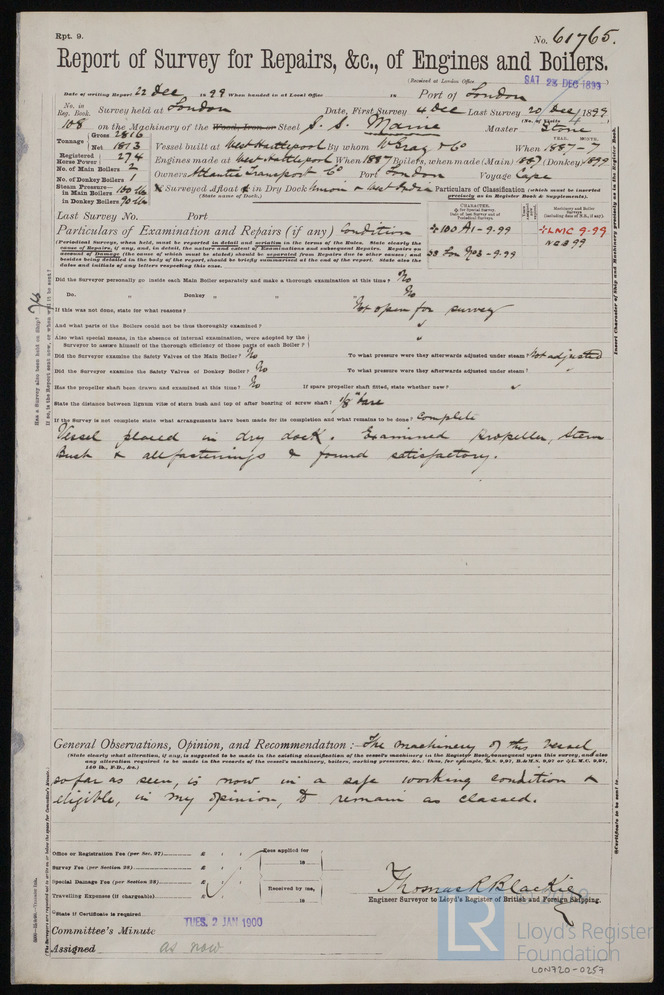 Rpt. 9.
No. 61765.
Report of Survey for Repairs, &c., of Engines and Boilers.
(Received at London Office SAT 23 DEC 1899)
Date of writing Report 22 Dec 1899 When handed in at Local Office 18 Port of London
No. in Reg. Book. Survey held at London Date, First Survey 4 Dec Last Survey 20 Dec 1899
(No. of Visits 4)
108 on the Machinery of the Wood, Iron or Steel S. S. Maine Master Stone
Tonnage Gross 2816 Net 1873 Vessel built at West Hartlepool By whom W Gray & Co When 1887-7
YEAR. MONTH.
Registered Horse Power 274 Engines made at West Hartlepool When 1887 Boilers, when made (Main) 1887 (Donkey) 1899
No. of Main Boilers 2
No. of Donkey Boilers 1 Owners Atlantic Transport Co Port London Voyage Cape
Steam Pressure— in Main Boilers 160 lb Surveyed Afloat & in Dry Dock Union & West India
(State name of Dock.)
in Donkey Boilers 90 lb
Particulars of Classification (which must be inserted precisely as in Register Book & Supplements).
Last Survey No. Port
CHARACTER.
Machinery and Boiler Surveys
(including date of N.B., if any).
Particulars of Examination and Repairs (if any) Condition
100 A1 - 9.99
LMC 9-99
(Periodical Surveys, when held, must be reported in detail and seriatim in the terms of the Rules. State clearly the
cause of Repairs, if any, and, in detail, the nature and extent of Examinations and subsequent Repairs. Repairs on
account of Damage (the cause of which must be stated) should be separated from Repairs due to other causes; and
besides being detailed in the body of the report, should be briefly summarised at the end of the report. State also the
dates and initials of any letters respecting this case.
Did the Surveyor personally go inside each Main Boiler separately and make a thorough examination at this time? No
Do. „ Donkey „ „ „ No
If this was not done, state for what reasons? Not open for survey
And what parts of the Boilers could not be thoroughly examined?
Also what special means, in the absence of internal examination, were adopted by the
Surveyor to assure himself of the thorough efficiency of those parts of each Boiler?
Did the Surveyor examine the Safety Valves of the Main Boiler? No To what pressure were they afterwards adjusted under steam? Not adjusted
Did the Surveyor examine the Safety Valves of Donkey Boiler? No To what pressure were they afterwards adjusted under steam?
Has the propeller shaft been drawn and examined at this time? No If spare propeller shaft fitted, state whether new?
State the distance between lignum vitæ of stern bush and top of after bearing of screw shaft? 1/8" bare
If the Survey is not complete state what arrangements have been made for its completion and what remains to be done? Complete
Vessel placed in dry dock. Examined Propeller, Stern
Bush & all fastenings & found satisfactory.
Has a Survey also been held on Ship?
If so, is the Report sent now, or when will it be sent?
Insert Character of Ship and Machinery precisely as in the Register Book.
General Observations, Opinion, and Recommendation:— The machinery of this vessel,
(State clearly what alteration, if any, is suggested to be made in the existing classification of the vessel's machinery in the Register Book, consequent upon this survey, and also
any alteration required to be made in the records of the vessel's machinery, boilers, working pressures, &c.
so far as seen, is now in a safe working condition &
eligible, in my opinion, to remain as classed.
Office or Registration Fee (per Sec. 27) £
Fees applied for
Survey Fee (per Section 28) £ 18
Special Damage Fee (per Section 28) £
Received by me,
Travelling Expenses (if chargeable) £ 18
Thomas R. Blackie
Engineer Surveyor to Lloyd's Register of British and Foreign Shipping.
State if Certificate is required
TUES. 2 JAN 1900
Committee's Minute
Assigned as now
LR
Lloyd's Register
Foundation
LON720-0257